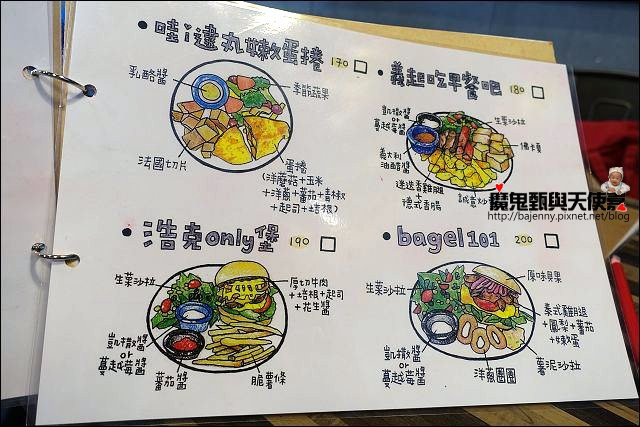 哇i違丸妹欸蛋捲 170
乳酪醬
季節蔬果
法國切片
蛋捲
(洋蘑菇+玉米
+洋蔥+蕃茄+青椒
+起司+培根)
義起吃早餐吧 180
凱撒醬
or
蔓越莓醬
生菜沙拉
佛卡夏
義大利
油酪醬
迷迭香雞腿
+
德式香腸
浩克only堡 190
生菜沙拉
厚切牛肉
+培根+起司
+花生醬
凱撒醬
or
蔓越莓醬
蕃茄醬
脆薯條
bagel101 200
生菜沙拉
原味貝果
泰式雞腿
+鳳梨+蕃茄
+嫩蛋
凱撒醬
or
蔓越莓醬
洋蔥圈圈
薯泥沙拉
魔鬼甄與天使嘉
http://bajenny.pixnet.net/blog